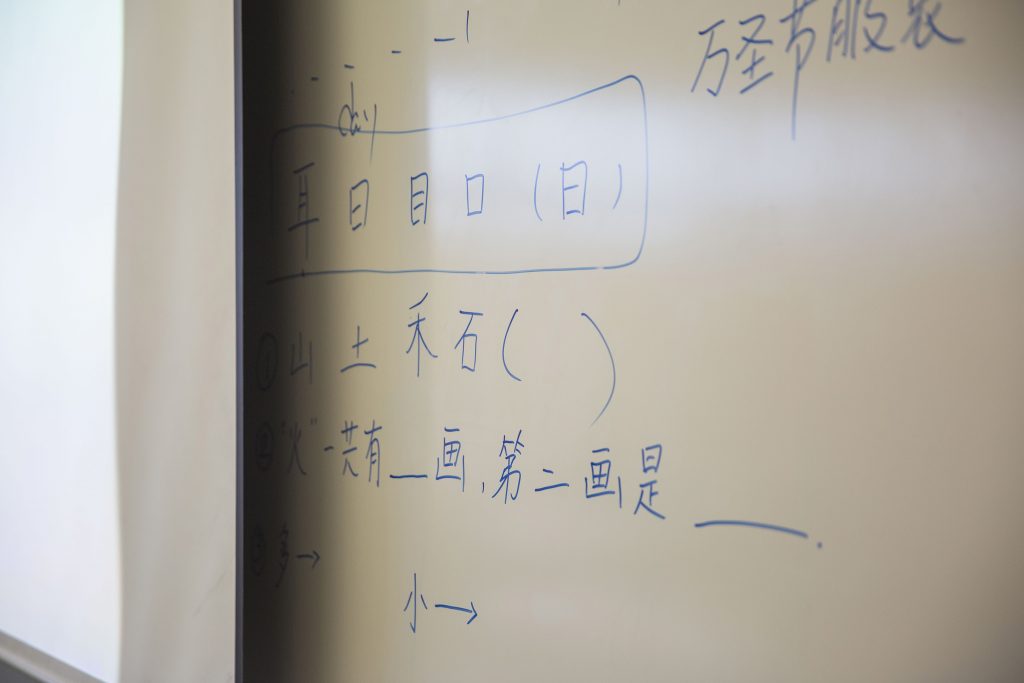 万圣节服装
day
耳日目口(日)
① 山土禾石( )
② "火"一共有__画,第二画是__.
③ 多→
小→